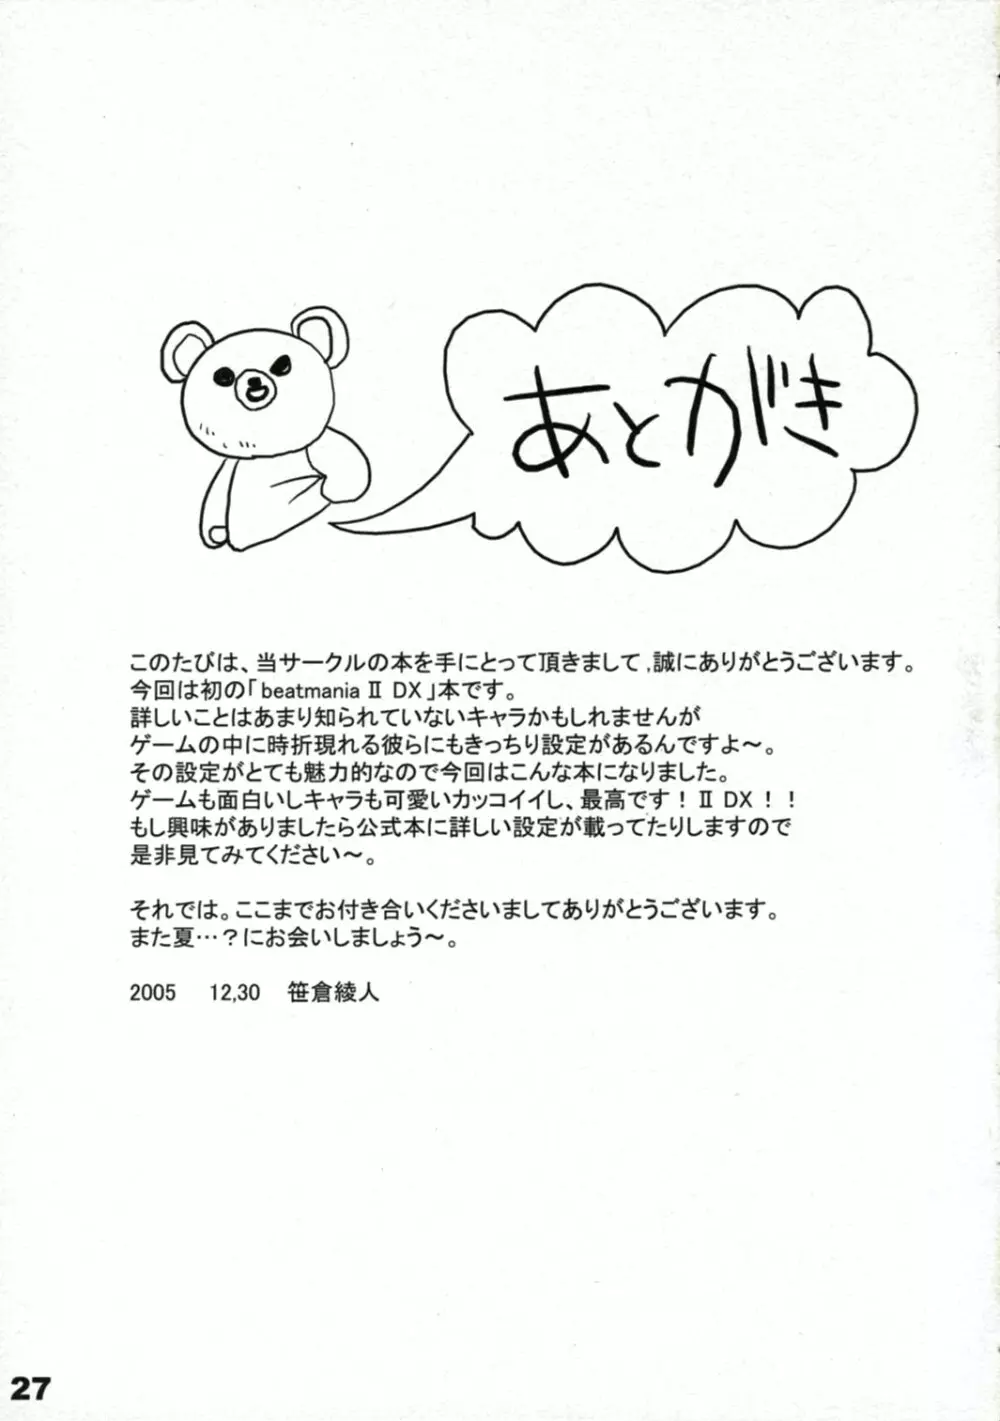 あとがき
このたびは、当サークルの本を手にとって頂きまして,誠にありがとうございます。
今回は初の「beatmaniaⅡ DX」本です。
詳しいことはあまり知られていないキャラかもしれませんが
ゲームの中に時折現れる彼らにもきっちり設定があるんですよ~。
その設定がとても魅力的なので今回はこんな本になりました。
ゲームも面白いしキャラも可愛いカッコイイし、最高です！Ⅱ DX！！
もし興味がありましたら公式本に詳しい設定が載ってたりしますので
是非見てみてください~。
それでは。ここまでお付き合いくださいましてありがとうございます。
また夏…？にお会いしましょう~。
2005 12,30 笹倉綾人
27